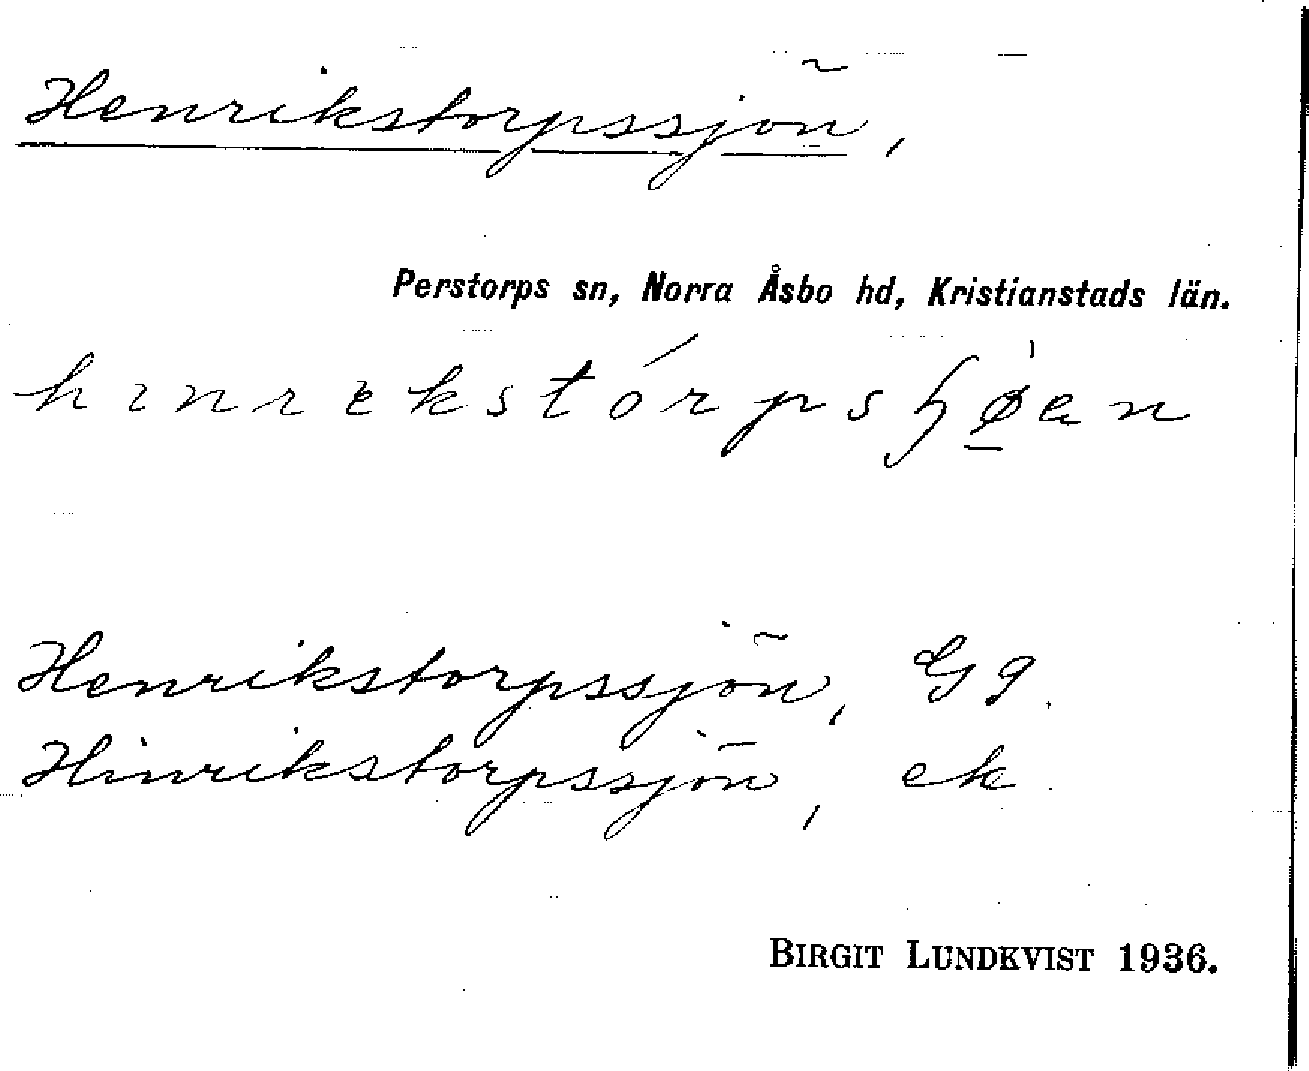 Henrikstorpssjön,
Perstorps sn, Norra Åsbo hd, Kristianstads län.
Henrikstorpssjön, Gg.
Hinrikstorpssjön, ek.
BIRGIT LUNDKVIST 1936.